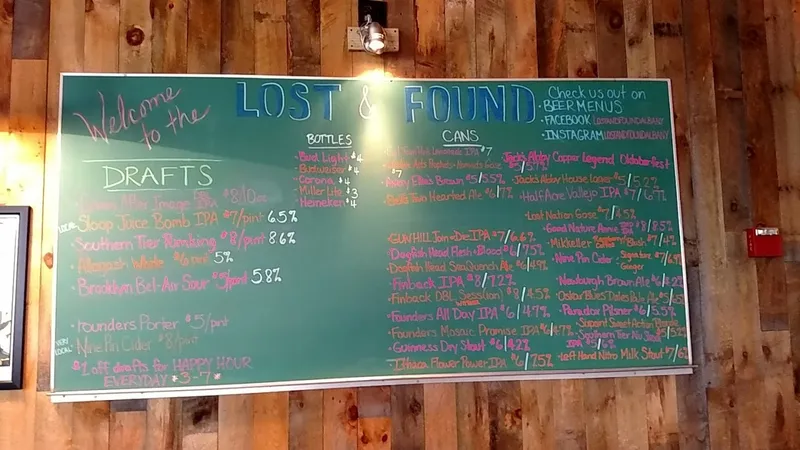 Welcome
to the
LOST & FOUND
Check us out on
• BEERMENUS
• FACEBOOK LOSTANDFOUNDALBANY
• INSTAGRAM LOSTANDFOUNDALBANY
DRAFTS
After Image $8/10oz
LOCAL Sloop Juice Bomb IPA $7/pint 6.5%
• Southern Tier Pumking $8/pint 8.6%
• Allagash White $6/pint 5%
• Brooklyn Bel-Air Sour $5/pint 5.8%
Founders Porter $5/pint
VERY LOCAL Nine Pin Cider $8/pint
$1 off drafts for HAPPY HOUR
EVERYDAY 3-7
BOTTLES
• Bud Light $4
• Budweiser $4
• Corona $4
• Miller Lite $3
• Heineken $4
CANS
IPA $7
Gose
Ellie's Brown $5/5.5%
Bell's Two Hearted Ale $6/7%
• GUN HILL Join or Die IPA $7/6.6%
• Dogfish Head Flesh + Blood $6/7.5%
• Dogfish Head SeaQuench Ale $6/4.9%
• Finback IPA $8/7.2%
• Finback DBL Sesssion $8/4.5%
• Founders All Day IPA $6/4.7%
• Founders Mosaic Promise IPA $6/4.7%
• Guinness Dry Stout $6/4.2%
• Ithaca Flower Power IPA $6/7.5%
Jack's Abby Copper Legend Oktoberfest
• Jack's Abby House Lager $5/5.2%
• Half Acre Vallejo IPA $7/6.7%
• Lost Nation Gose $7/4.5%
• Good Nature Annie $8/8.5%
• Mikkeller Blush $7/4%
• Nine Pin Cider - Signature $7/
Ginger
• Newburgh Brown Ale $6/4.2%
• Oskar Blues Dales Pale Ale $5/
• Paradox Pilsner $6/5.5%
• Sixpoint Sweet Action $5/5.2%
• Southern Tier Nu Skool
IPA $5/6%
• Left Hand Nitro Milk Stout $7/6%